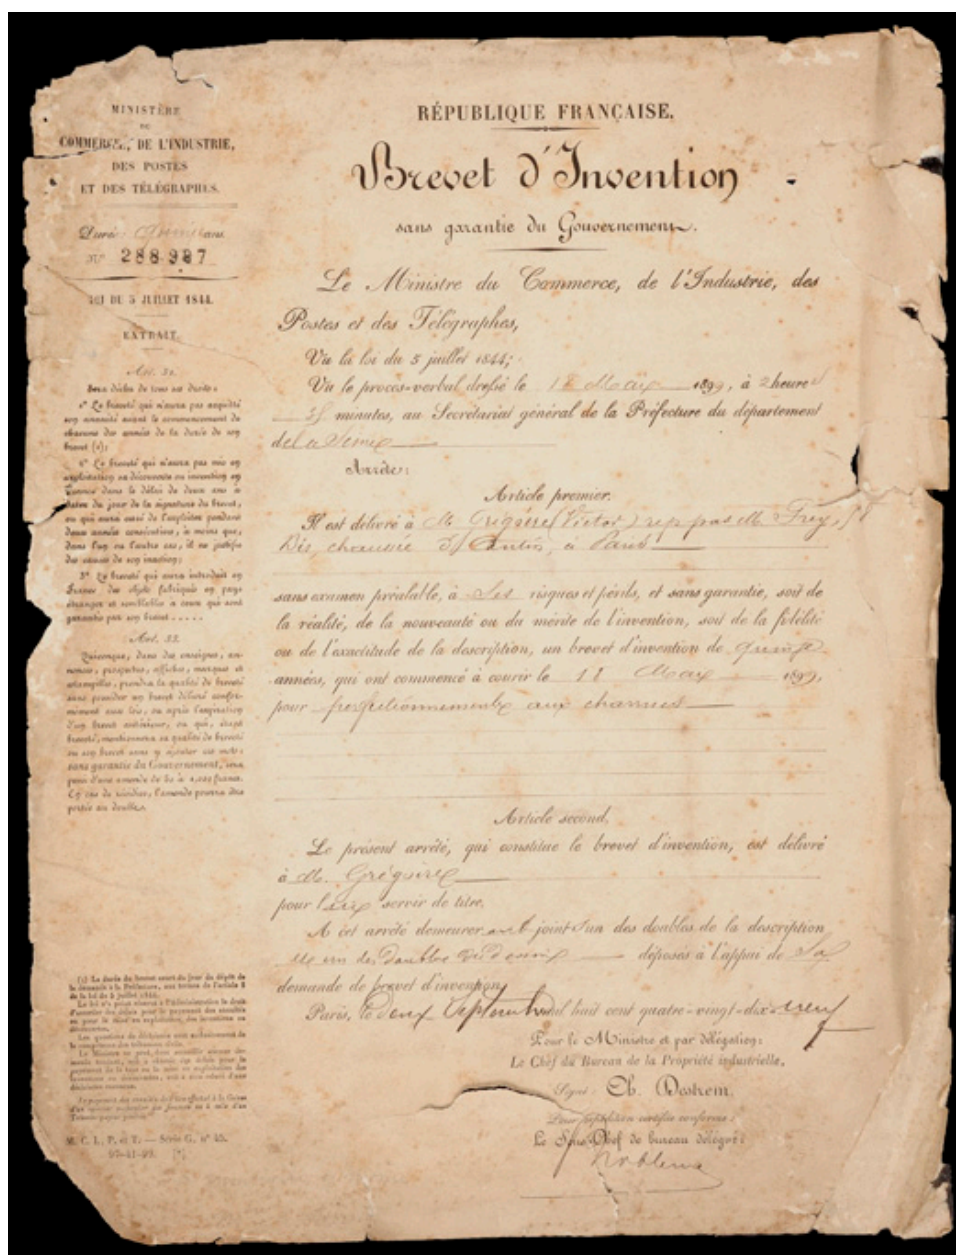 MINISTÈRE
DU
COMMERCE, DE L'INDUSTRIE,
DES POSTES
ET DES TÉLÉGRAPHES.
Durée: quinze ans.
N° 288.987
LOI DU 5 JUILLET 1844.
EXTRAIT.
Art. 32.
Sera déchu de tous ses droits:
1° Le breveté qui n'aura pas acquitté
son annuité avant le commencement de
chacune des années de la durée de son
brevet (1);
2° Le breveté qui n'aura pas mis en
exploitation sa découverte ou invention en
France dans le délai de deux ans à
dater du jour de la signature du brevet,
ou qui aura cessé de l'exploiter pendant
deux années consécutives, à moins que,
dans l'un ou l'autre cas, il ne justifie
des causes de son inaction;
3° Le breveté qui aura introduit en
France des objets fabriqués en pays
étranger et semblables à ceux qui sont
garantis par son brevet.....
Art. 33.
Quiconque, dans des enseignes, an-
nonces, prospectus, affiches, marques et
estampilles, prendra la qualité de breveté
sans posséder un brevet délivré confor-
mément aux lois, ou après l'expiration
d'un brevet antérieur, ou qui, étant
breveté, mentionnera sa qualité de breveté
ou son brevet sans y ajouter ces mots:
sans garantie du Gouvernement, sera
puni d'une amende de 50 à 1,000 francs.
En cas de récidive, l'amende pourra être
portée au double.
(1) La durée du brevet court du jour du dépôt de
la demande à la Préfecture, aux termes de l'article 8
de la loi du 5 juillet 1844.
La loi n'a point réservé à l'Administration le droit
d'accorder des délais pour le payement des annuités
ou pour la mise en exploitation des inventions ou
découvertes.
Les questions de déchéance sont exclusivement de
la compétence des tribunaux civils.
Le Ministre ne peut, donc accueillir aucune de-
mande tendant, soit à obtenir des délais pour le
payement de la taxe ou la mise en exploitation des
inventions ou découvertes, soit à être relevé d'une
déchéance encourue.
M. C. I., P. et T. — Série G, n° 45.
97-41-99. [*]
RÉPUBLIQUE FRANÇAISE.
Brevet d'Invention
sans garantie du Gouvernement.
Le Ministre du Commerce, de l'Industrie, des
Postes et des Télégraphes,
Vu la loi du 5 juillet 1844;
Vu le procès-verbal dressé le 18 Mai 1899, à 2 heures
minutes, au Secrétariat général de la Préfecture du département
de la Seine
Arrête:
Article premier.
Il est délivré à M. Grégoire (Victor) rep. par M. Frey, 58
Bis, chaussée d'Antin, à Paris
sans examen préalable, à ses risques et périls, et sans garantie, soit de
la réalité, de la nouveauté ou du mérite de l'invention, soit de la fidélité
ou de l'exactitude de la description, un brevet d'invention de quinze
années, qui ont commencé à courir le 18 Mai 1899,
pour perfectionnements aux charrues
Article second.
Le présent arrêté, qui constitue le brevet d'invention, est délivré
à M. Grégoire
pour lui servir de titre.
A cet arrêté demeurera joint l'un des doubles de la description
et un des doubles du dessin déposés à l'appui de sa
demande de brevet d'invention.
Paris, le deux Septembre mil huit cent quatre-vingt-dix-neuf
Pour le Ministre et par délégation:
Le Chef du Bureau de la Propriété industrielle,
Signé: Ch. Destrem.
Pour expédition certifiée conforme:
Le Sous-Chef de bureau délégué: